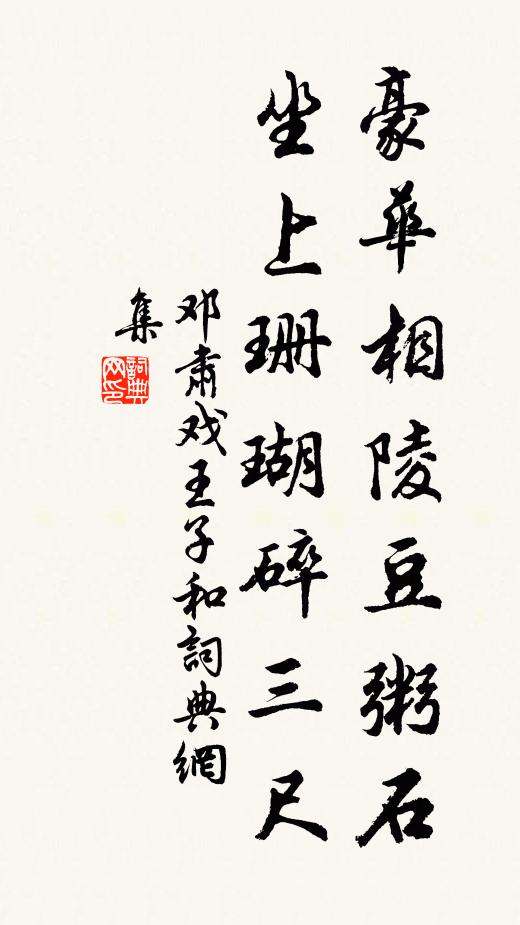 豪華相陵豆粥石
坐上珊瑚碎三尺
邓肅戏王子和詞典網
集
詞典
网印